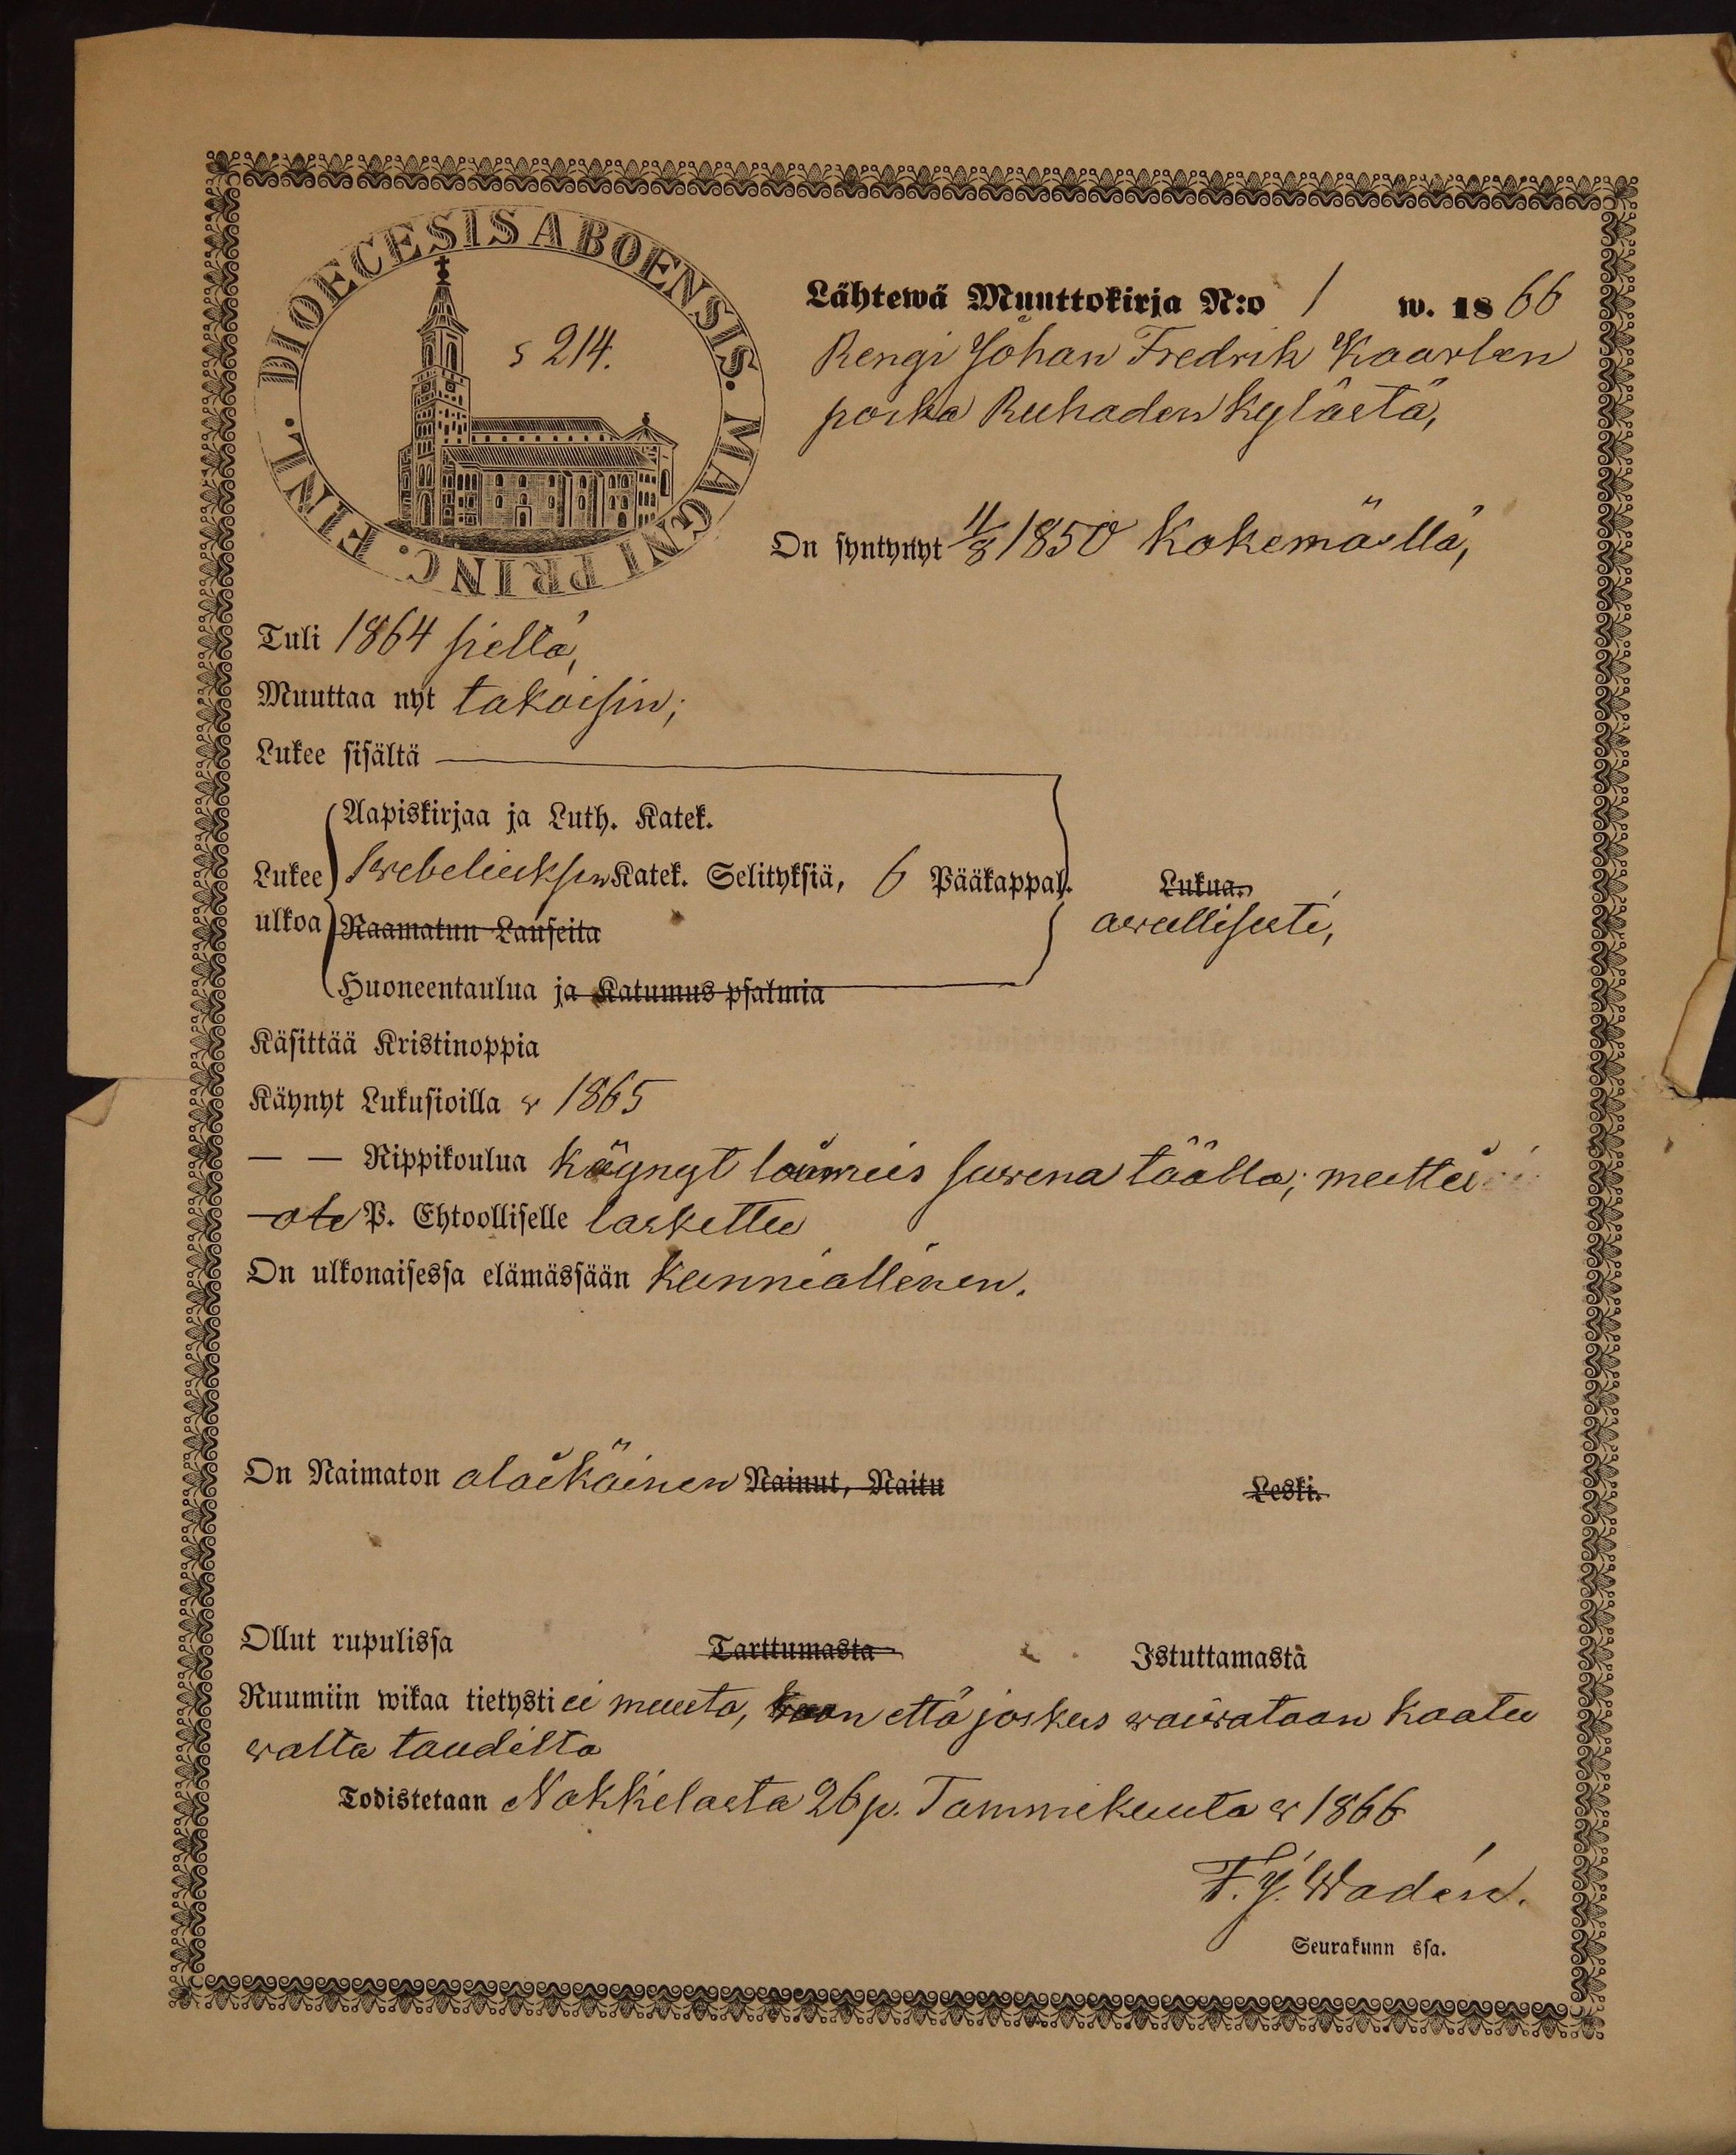 DIOECESIS ABOENSIS. MAGNI PRINC. FINL.
s 214.
Lähtewä Muuttokirja N:o 1 w. 1866
Rengi Johan Fredrik Kaarlen
poika Ruhaden kylästä,
On syntynyt 11/8 1850 Kokemäellä,
Tuli 1864 sieltä,
Muuttaa nyt takaisin;
Lukee sisältä
Aapiskirjaa ja Luth. Katek.
Lukee ulkoa
Swebeliuksen Katek. Selityksiä, 6 Pääkappal. Lukua.
Raamatun Lauseita
awullisesti,
Huoneentaulua ja Katumus psalmia
Käsittää Kristinoppia
Käynyt Lukusioilla w 1865
— — Rippikoulua käynyt suwena täällä; mutta ei
ole P. Ehtoolliselle laskettu
On ulkonaisessa elämässään kunniallinen.
On Naimaton alaikäinen Nainut, Naitu Leski.
Ollut rupulissa Tarttumasta Istuttamasta
Ruumiin wikaa tietysti ei muuta, kuon että joskus waiwataan kaatu
walta taudilta
Todistetaan Nakkilasta 26 p. Tammikuuta w 1866
F. J. Wadén.
Seurakunn ssa.